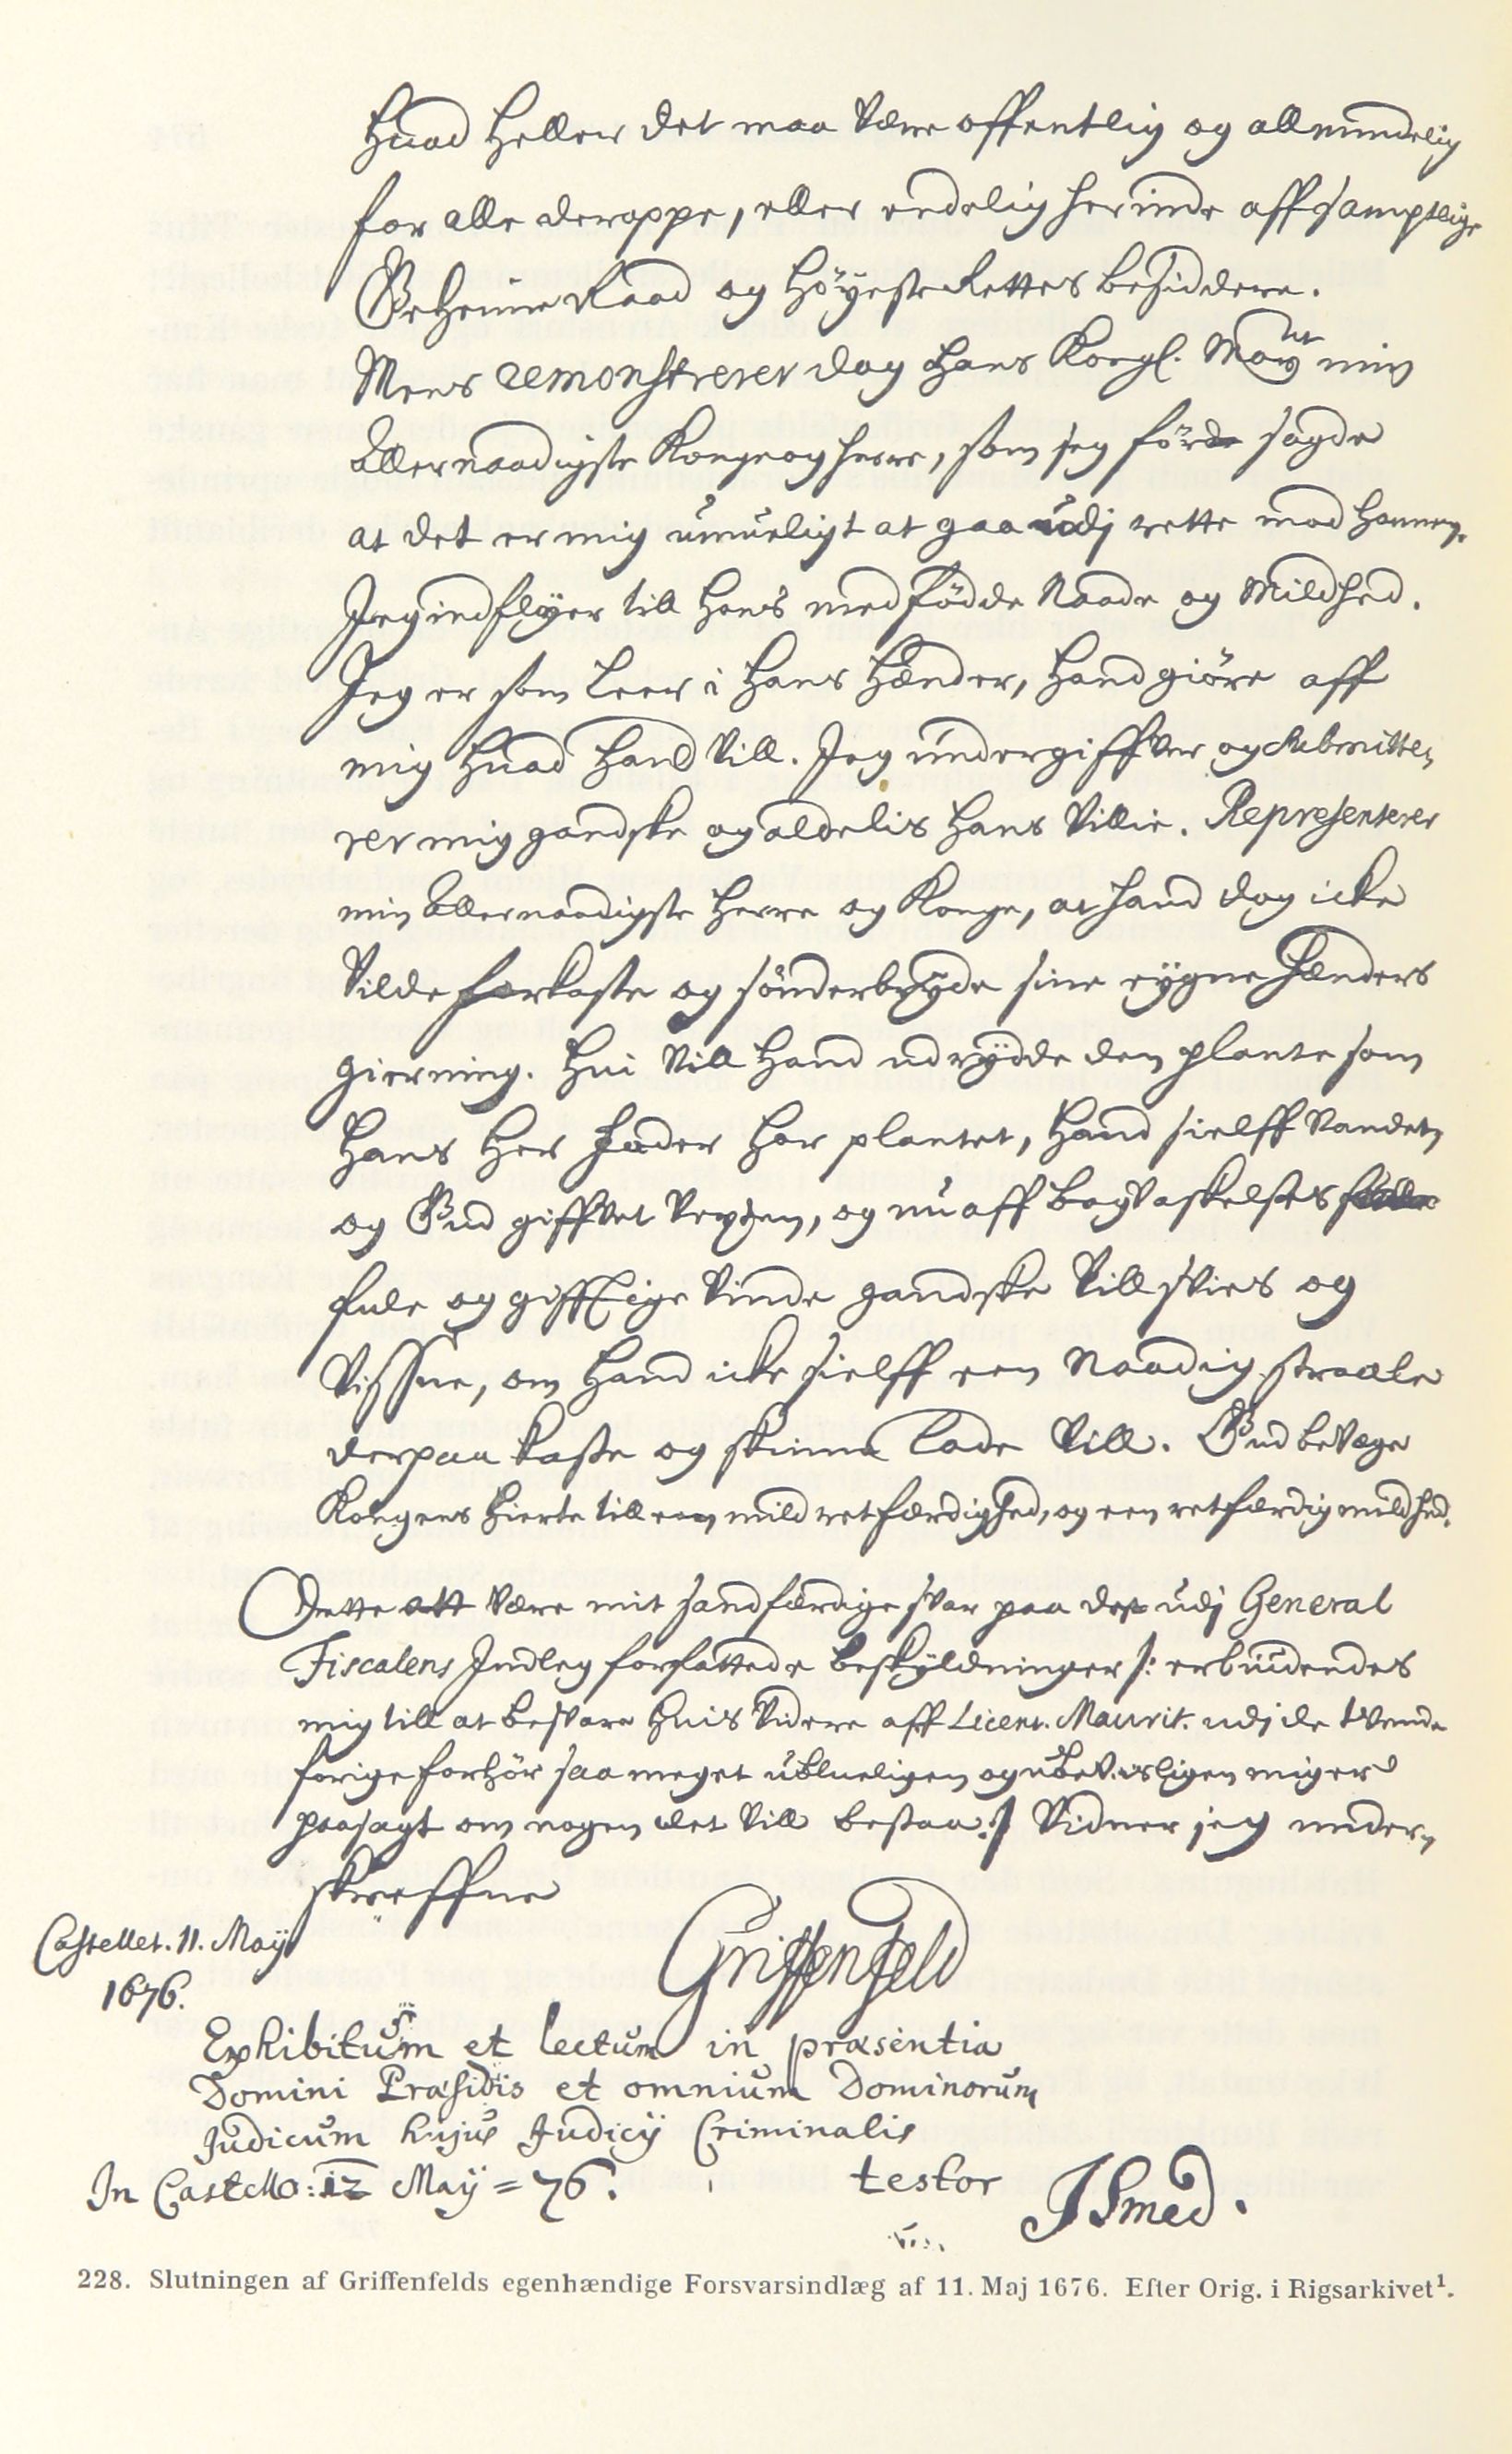 Huad heller det maa være offentlig og allmindelig
for alle deroppe, eller endelig herinde aff samptlige
Geheime Raad og Höyeste Rettes besiddere.
Mens remonstrerer dog Hans Kongl. Mayt min
Allernaadigste Konge og herre, som jeg förde sagde
at det er mig umueligt at gaa udj rette mod hannem.
Jeg indflyer till Hans medfödde Naade og Mildhed.
Jeg er som Leer i Hans Hænder, Hand giöre aff
mig Huad Hand vill. Jeg undergiffver og submitte-
rer mig gandske og aldelis Hans Villie. Representerer
min Allernaadigste Herre og Konge, at hand dog icke
vilde forkaste og sönderbryde sine eygne hænders
gierning. Hui vill Hand udrydde den plante som
Hans Her Fader har plantet, Hand sielff vandet,
og Gud giffvet vexten, og nu aff bagvaskelses
fule og gifftige vinde gandske vill svies og
visSne, om Hand icke sielff een Naadig straale
derpaa kaste og skinne lade vill. Gud bevæge
Kongens Hierte till een mild retfærdighed, og een retfærdig mildhed.
Dette att være mit sandfærdige svar paa det udj General
Fiscalens Indleg forfattede beskyldninger /: erbiudendes
mig till at besvare Huis videre aff Licent. Maurit. udj de tvende
forige forhör saa meget ublueligen og ubevisligen mig er
paasagt om nogen det vill bestaa :/ Vidner jeg under-
skreffne
Castellet. 11. Maij
1676.
Griffenfeld
Exhibitum et lectum in præsentia
Domini Præsidis et omnium Dominorum
Judicum hujus Judicij Criminalis
In Castello: 12 Maij = 76.
testor
J Smed.
228. Slutningen af Griffenfelds egenhændige Forsvarsindlæg af 11. Maj 1676. Efter Orig. i Rigsarkivet¹.